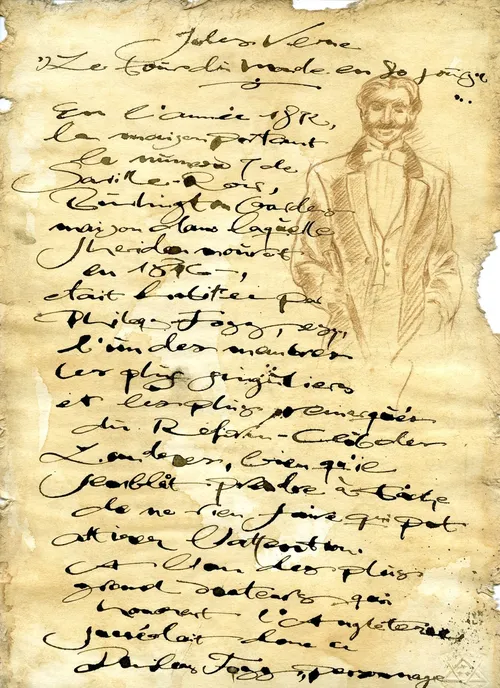 Jules Verne
"Le tour du monde en 80 jours"
...
En l'année 1872,
la maison portant
le numéro 7 de
Saville-Row,
Burlington Gardens
maison dans laquelle
Sheridan mourut
en 1816,
était habitée par
Phileas Fogg, esq,
l'un des membres
les plus singuliers
et les plus remarqués
du Reform-Club de
Londres, bien qu'il
semblât prendre à tâche
de ne rien faire qui put
attirer l'attention.
A l'un des plus
grand orateurs qui
honorent l'Angleterre,
succédait donc ce
Phileas Fogg, personnage